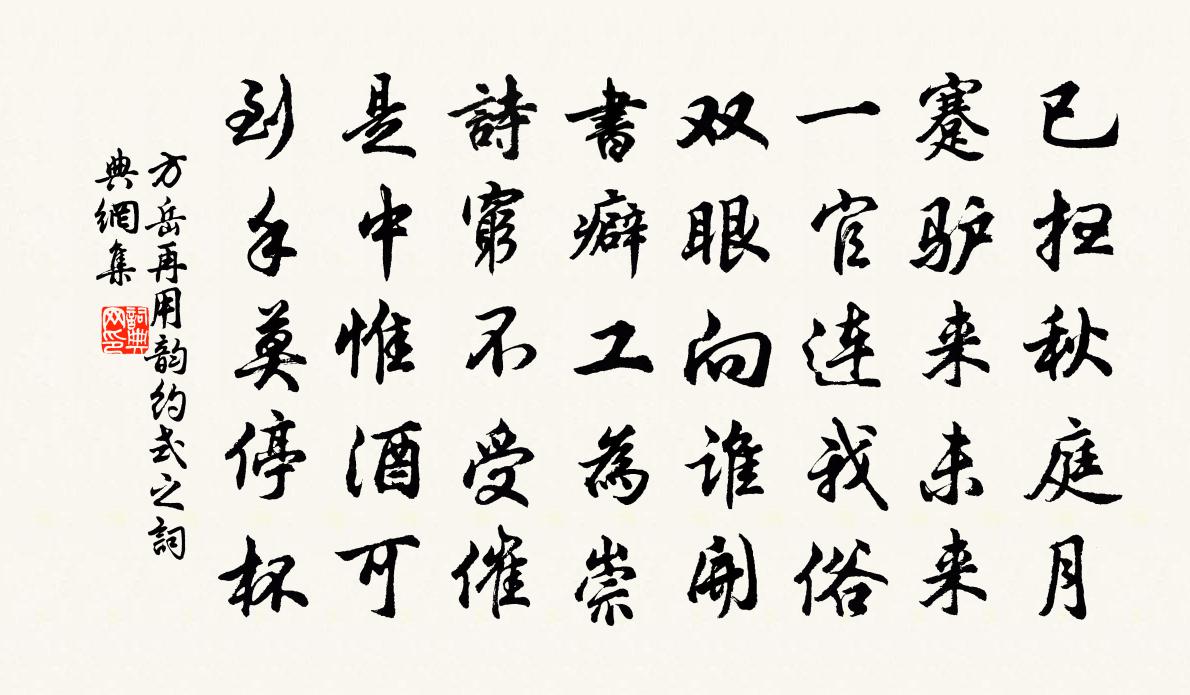 已扫秋庭月
蹇驴来未来
一官连我俗
双眼向谁開
書癖工為崇
詩窮不受催
是中惟酒可
到手莫停杯
方岳再用韵约式之詞
典網集
詞典
网印